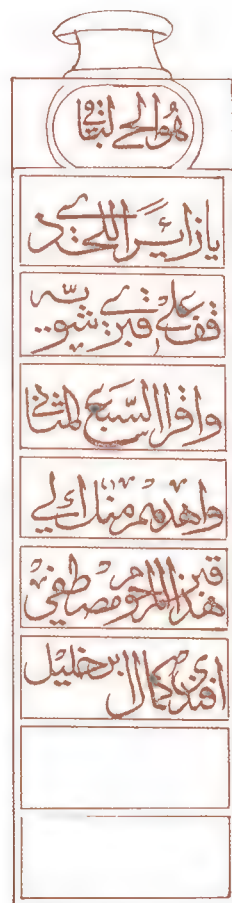 هو الحي الباقي
يا زايرًا اللحدي
قف علي قبري شويه
واقرا السبع المثاني
واهدهم منك الي
هذا قبر المرحوم مصطفي
افندي كمال ابن خليل